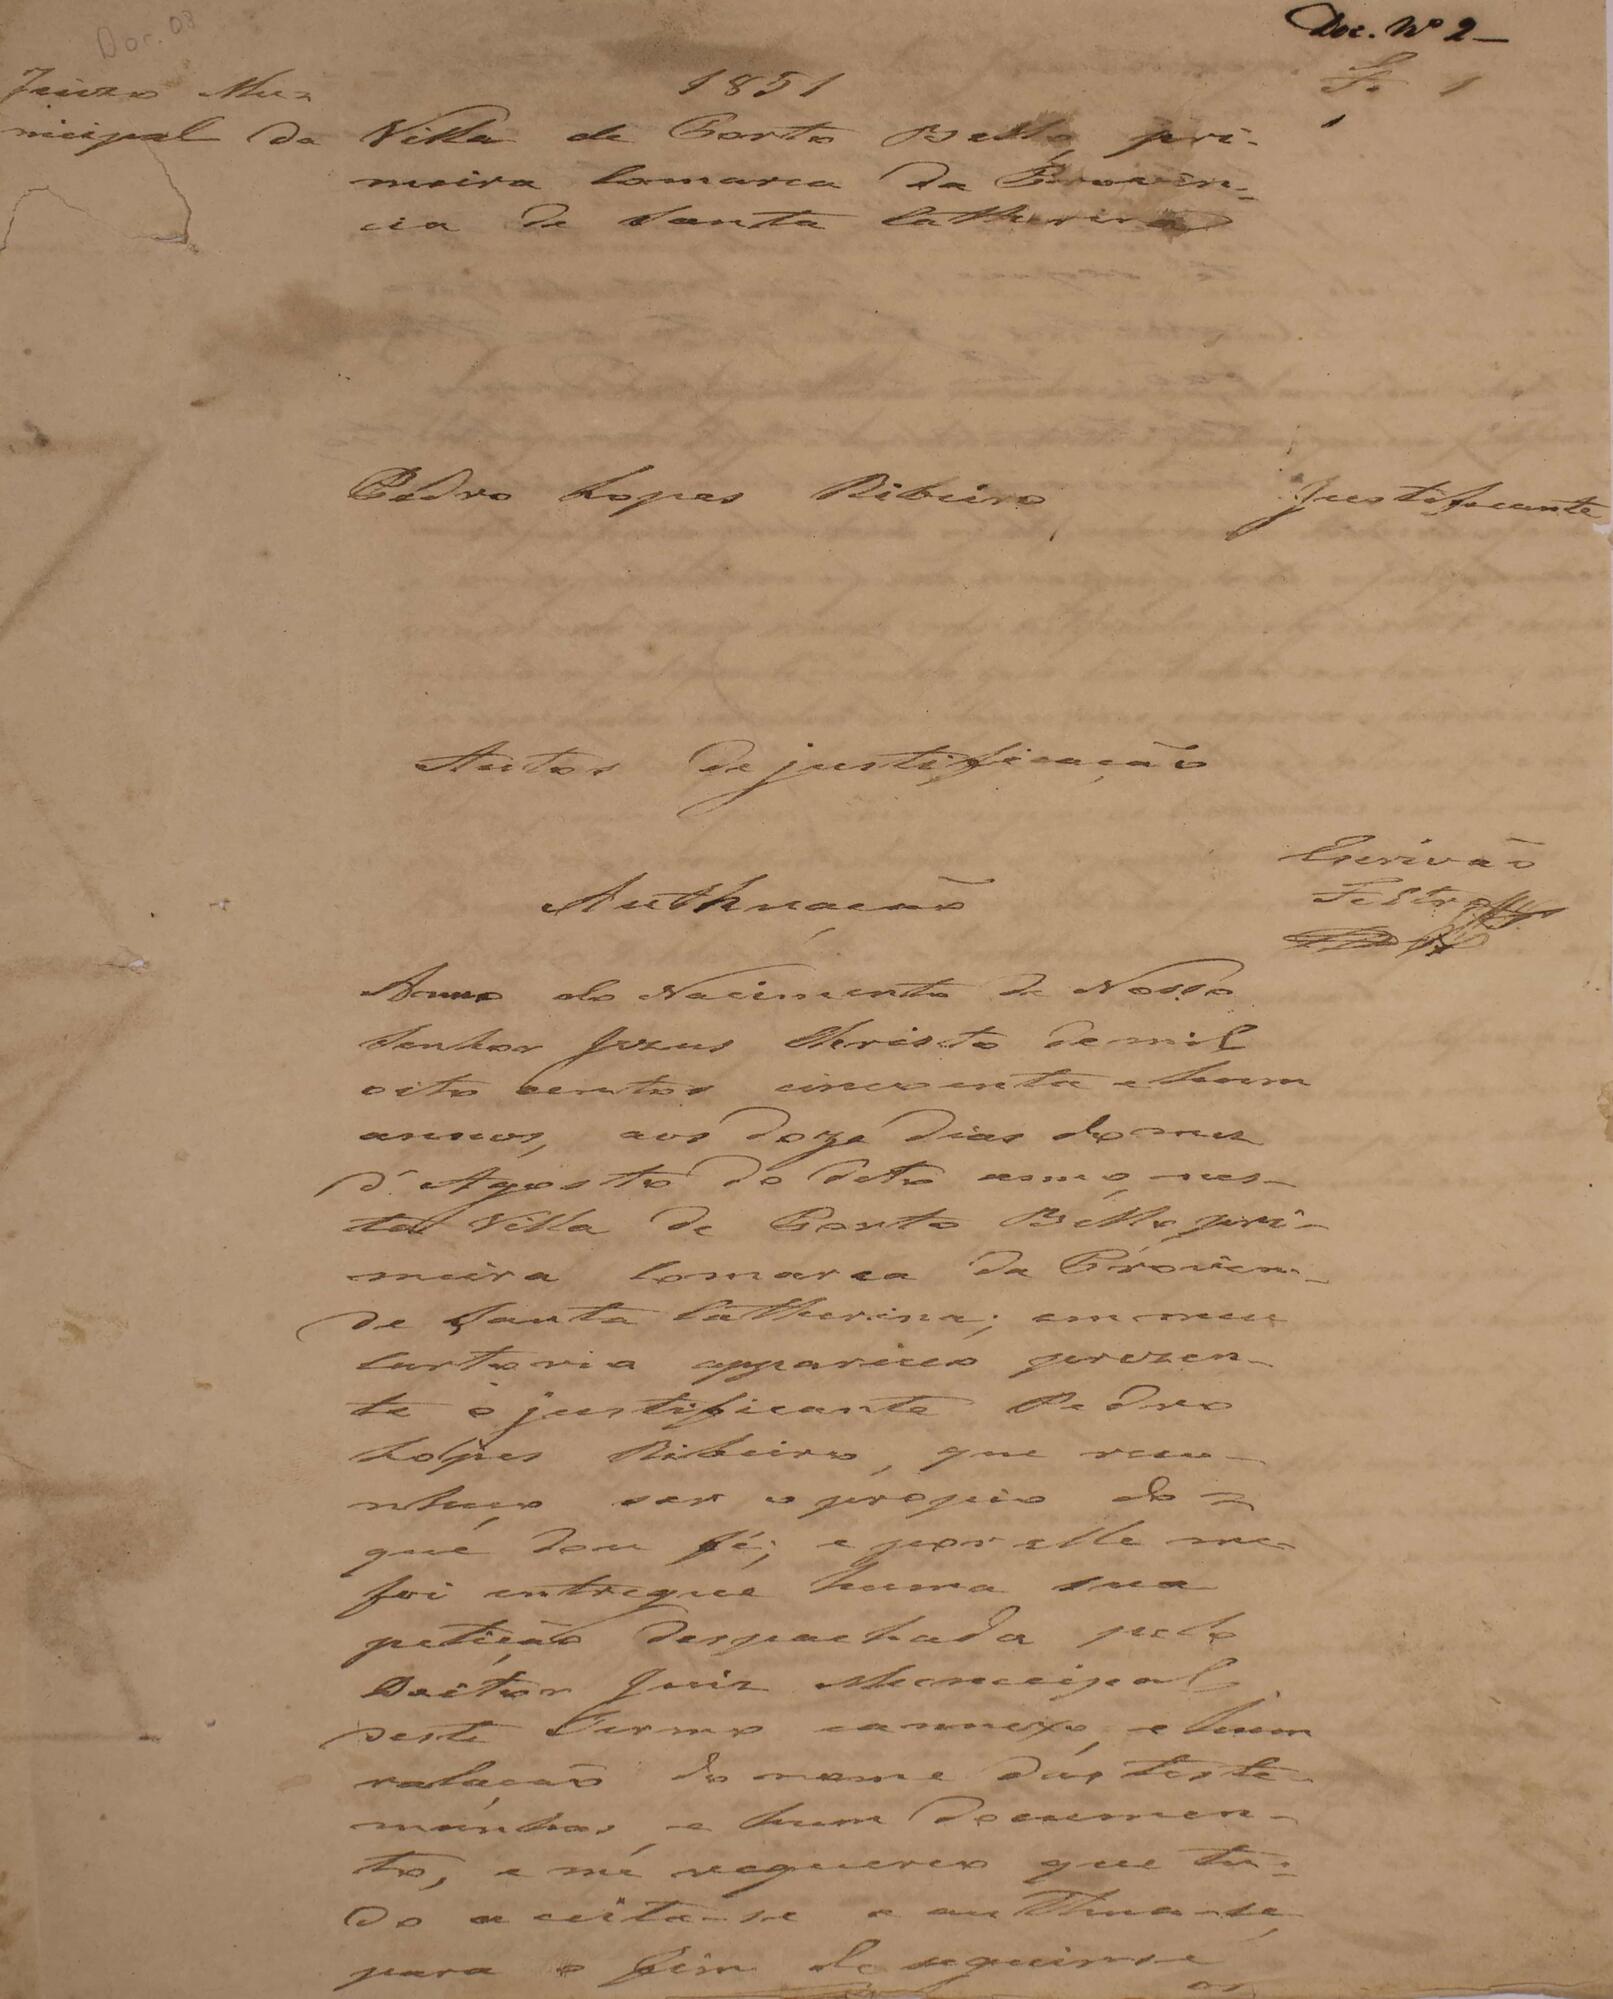 Doc. 08
Doc. Nº 2
1851
Fs 1
Juizo Mu-
nicipal da Villa de Porto Bello, pri-
meira Comarca da Provin-
cia de Santa Catherina
Pedro Lopes Ribeiro Justificante
Autos de justificação
Escrivão
Authuação
Anno do Nacimento de Nosso
Senhor Jezus Christo de mil
oito centos cincoenta e hum
annos, aos doze dias do mez
d'Agosto do dito anno, nes-
ta Villa de Porto Bello pri-
meira Comarca da Provin-
de Santa Catherina; em meu
Cartorio appareceo prezen-
te o justificante Pedro
Lopes Ribeiro, que reco-
nheço ser o propio do
que dou fé; e por elle me
foi entregue huma sua
petição despachada pelo
Doutor Juiz Municipal
deste Termo annexo, e hum
relação do nome das teste-
munhas, e hum documen-
to, e me requereo que tu-
do aceita-se e authua-se,
para o fim de seguimse
os